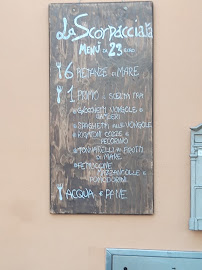 La Scorpacciata
MENÙ DA 23 EURO
6 PIETANZE DI MARE
1 PRIMO A SCELTA TRA
GNOCCHETTI VONGOLE E
GAMBERI
SPAGHETTI ALLE VONGOLE
RIGATONI COZZE E
PECORINO
TONNARELLI AI FRUTTI
DI MARE
FETTUCCINE
MAZZANCOLLE E
POMODORINI
ACQUA E PANE